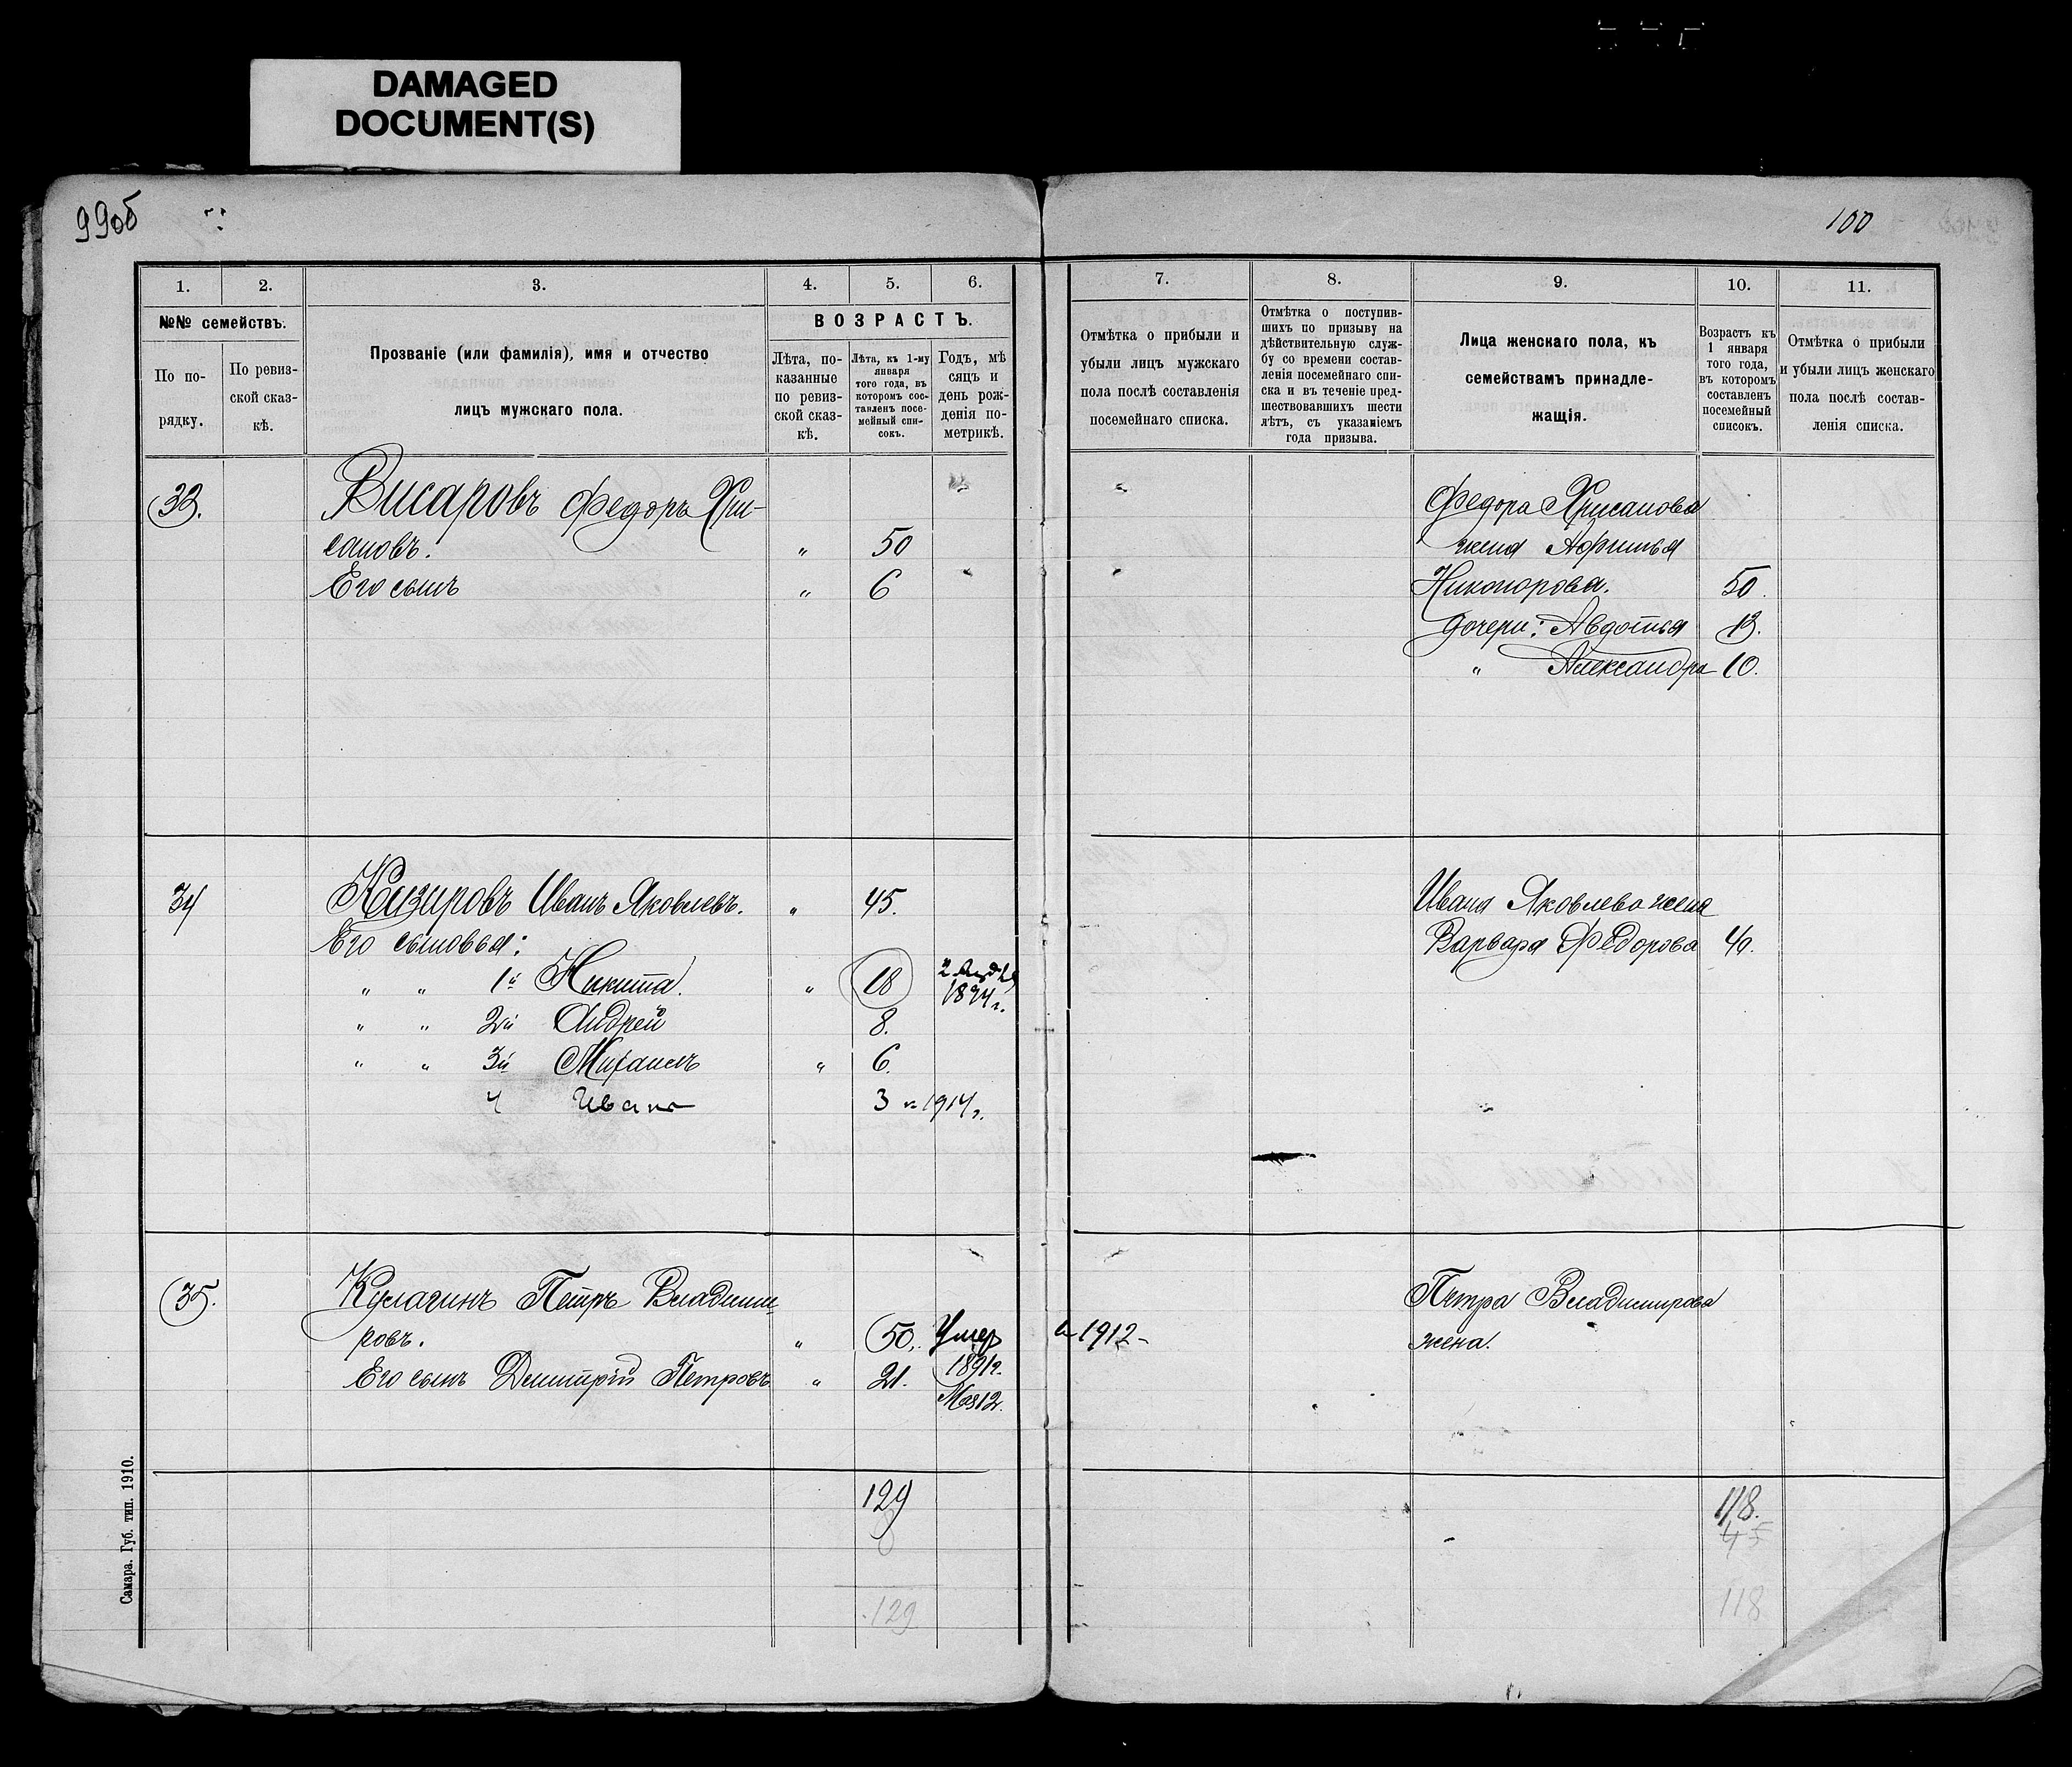 DAMAGED
DOCUMENT(S)
99об
100
1.
2.
3.
4.
5.
6.
№№ семействъ.
По по-
рядку.
По ревиз-
ской сказ-
кѣ.
Прозваніе (или фамилія), имя и отчество
лицъ мужскаго пола.
ВОЗРАСТЪ.
Лѣта, по-
казанные
по ревиз-
ской сказ-
кѣ.
Лѣта, къ 1-му
января
того года, въ
которомъ сос-
тавленъ посе-
мейный спи-
сокъ.
Годъ, мѣ
сяцъ и
день рож-
денія по-
метрикѣ.
7.
8.
9.
10.
11.
Отмѣтка о прибыли и
убыли лицъ мужскаго
пола послѣ составленія
посемейнаго списка.
Отмѣтка о поступив-
шихъ по призыву на
дѣйствительную служ-
бу со времени состав-
ленія посемейнаго спи-
ска и въ теченіе пред-
шествовавшихъ шести
лѣтъ, съ указаніемъ
года призыва.
Лица женскаго пола, къ
семействамъ принадле-
жащія.
Возрастъ къ
1 января
того года,
въ которомъ
составленъ
посемейный
списокъ.
Отмѣтка о прибыли
и убыли лицъ женскаго
пола послѣ состав-
ленія списка.
33. Висаровъ Федоръ Хри-
сановъ. " 50
Его сынъ " 6
Федора Хрисанова
жена Афимья
Никонорова. 50.
дочери: Авдотья 13.
" Александра 10.
34 Казировъ Иванъ Яковлевъ. " 45.
Его сыновья:
" " 1й Никита. " 18 1894 г.
" " 2й Андрей 8.
" " 3й Михаилъ " 6.
4 Иванъ 3 в 1914 г.
Ивана Яковлева жена
Варвара Федорова 40.
35. Кулагинъ Петръ Владими
ровъ. " 50. Умер в 1912
Его сынъ Дмитрій Петровъ " 21. 1891 г.
Мая 12.
Петра Владимирова
жена.
129
8
129
118.
45
118
Самара. Губ. тип. 1910.